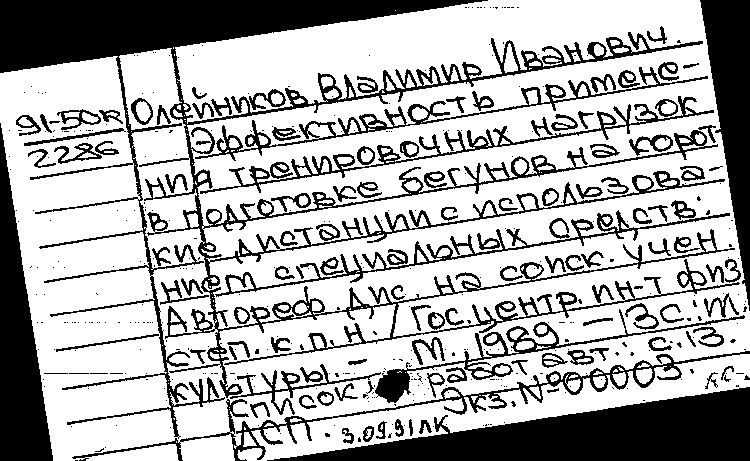 Олейников, Владимир Иванович.
91-50к Эффективность примене-
2286 ния тренировочных нагрузок
в подготовке бегунов на корот-
кие дистанции с использова-
нием специальных средств:
Автореф. дис. на соиск. учен.
степ. к.п.н. / Гос.центр.ин-т физ.
культуры. - М., 1989. - 13 с.: М.
Список работ авт.: с.13.
ДСП. Экз.№00003.
3.09.91 ЛК